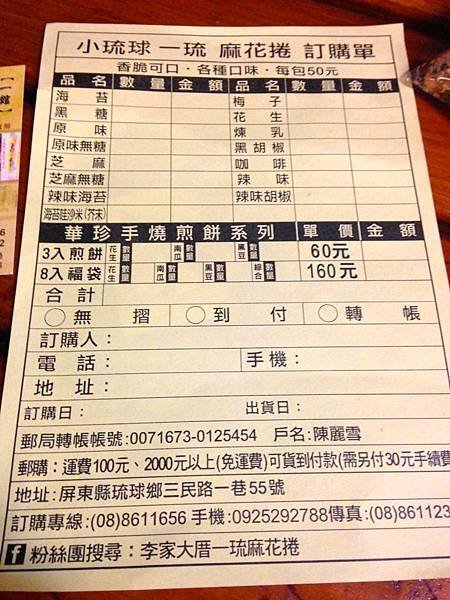 小琉球 一琉 麻花捲 訂購單
香脆可口．各種口味．每包50元
品名 數量 金額 品名 數量 金額
海苔 梅子
黑糖 花生
原味 煉乳
原味無糖 黑胡椒
芝麻 咖啡
芝麻無糖 辣味
辣味海苔 辣味胡椒
海苔哇沙米(芥末)
華珍手燒煎餅系列 單價 金額
3入煎餅 花生 數量 南瓜 數量 黑豆 數量 60元
8入福袋 花生 數量 南瓜 數量 黑豆 數量 綜合 數量 160元
合計
無摺 到付 轉帳
訂購人：
電話： 手機：
地址：
訂購日： 出貨日：
郵局轉帳帳號:0071673-0125454 戶名:陳麗雪
郵購：運費100元、2000元以上(免運費)可貨到付款(需另付30元手續費
地址:屏東縣琉球鄉三民路一巷55號
訂購專線:(08)8611656 手機:0925292788傳真:(08)861123
f 粉絲團搜尋：李家大厝一琉麻花捲